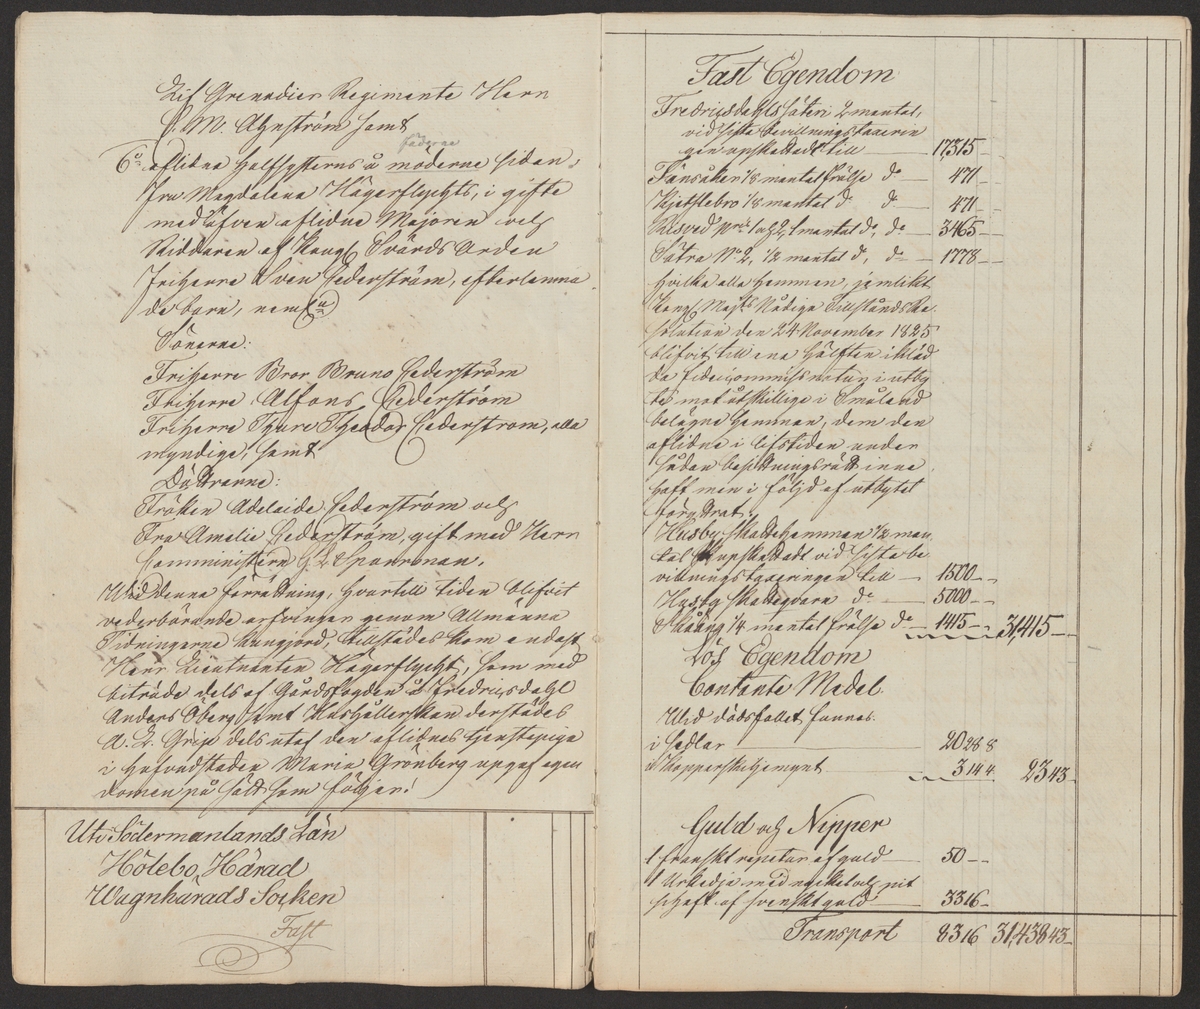 Lif Grenadier Regimente Herr
C. M. Alynström samt
faderne
6o aflidna Halfsysterns å moderne sidan,
Fru Magdalena Hägerflychts, i gifte
med äfven aflidne Majoren och
Riddaren af Kongl Svärds Orden
Friherre Sven Cederström, efterlemna
de barn, neml
Sönerne:
Friherre Bror Bruno Cederström
Friherre Alfons Cederström
Friherre Thure Theodor Cederstrom, alla
myndige, samt
Döttrarne:
Fröken Adelaide Cederström och
Fru Amelie Cederström, gift med Herr
Comministern G. L. Sparrman.
Wid denna förrättning, hvartill tiden blifvit
vederbörande arfvingar genom Allmänna
Tidningarne kungjord, tillstädes kom endast
Herr Lieutnanten Hägerflycht, som med
biträde dels af Gårdsfogden å Fredricsdahl
Anders Öberg samt Hushållerskan derstädes
A. L. Grip dels utaf den aflidnes tjenstepiga
i hufvudstaden Maria Grönberg uppgaf egen
domen på sätt som följer!
Uti Södermanlands Län
Hölebo Härad
Wagnhärads Socken
Fast
Fast Egendom
Fredricsdahls säteri 2 mantal,
vid sista bevillningstaxerin
gen upskattadt till 17,315 –
Fänsåker 1/8 mantal frälse do 471 –
Kjettlebro 1/8 mantal do do 471 –
Risved Nris 1 och 2, 1 mantal do, do 3465 –
Sätra No 2, 1/2 mantal do, do 1778 –
hvilka alla hemman, jemlikt
Kongl Majts Nådiga Tillstånds Re
solution den 24 November 1825
blifvit till ena hälften iklad
da fideicommiss natur i utby
te mot åtskillige i Småland
belägne hemman, dem den
aflidne i lifstiden under
sådan besittningsrätt inne
haft men i följd af utbytet
föryttrat.
Husby skattehemman 1/2 man
tal upskattadt vid sista be
villningstaxeringen till 1500 –
Husby skatteqvarn do 5000 –
Skääng 1/4 mantal frälse do 1415 – 31,415 –
Lös Egendom
Contante Medel.
Wid dödsfallet fannos.
i Sedlar 20 28 8
i Kopparskiljemynt 3 14 4 23 43 –
Guld och Nipper
1 franskt repeter ur af guld 50 – –
1 Urkedja med nyckel och pit
schaft af svenskt guld 33 16 –
Transport 83 16 31,438 43 –